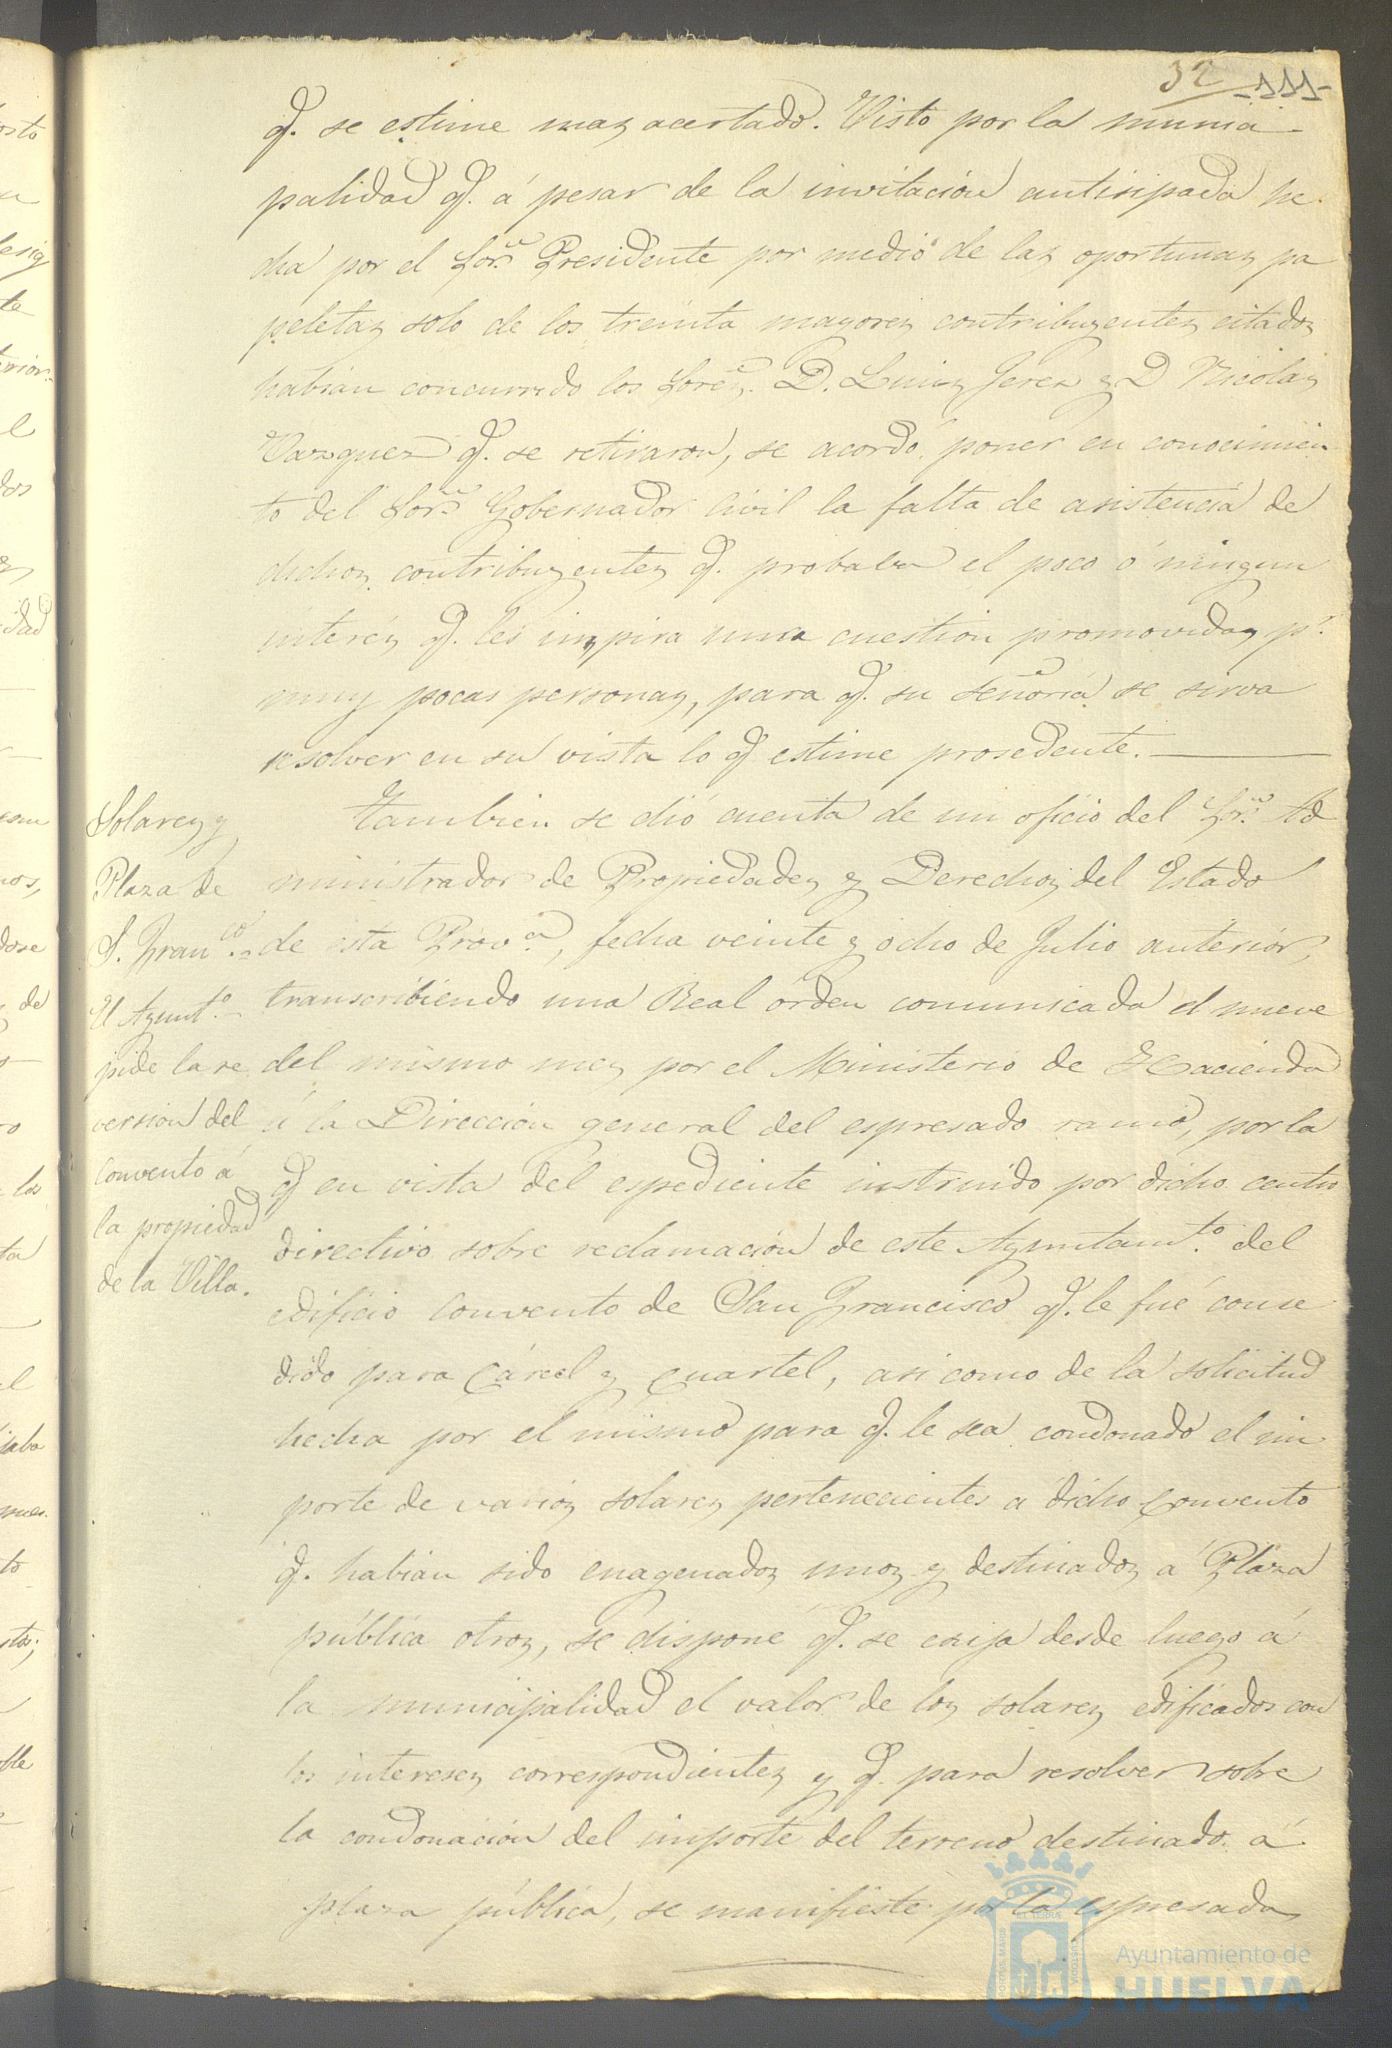 32 -111-
q.e se estime mas acertado. Visto por la munici-
palidad q.e á pesar de la invitación antisipada he-
cha por el Sor. Presidente por medio de las oportunas pa
peletas solo de los treinta mayores contribuyentes citados
habian concurrido los Sores. D. Luis Jerez y D Nicolas
Vazquez q.e se retiraron, se acordó poner en conocimien-
to del Sor. Gobernador Civil la falta de asistencia de
dichos contribuyentes q.e probaba el poco ó ningun
interés q.e les inspira una cuestion promovidas p.r
muy pocas personas, para q.e su señoria se sirva
resolver en su vista lo q.e estime prosedente.
Tambien se dió cuenta de un oficio del Sor. Ad
ministrador de Propiedades y Derechos del Estado
de esta Prov.a, fecha veinte y ocho de Julio anterior,
transcribiendo una Real órden comunicada el nueve
del mismo mes por el Ministerio de Hacienda
á la Dirección general del espresado ramo, por la
q.e en vista del espediente instruido por dicho centro
directivo sobre reclamación de este Ayuntam.to del
edificio Convento de San Francisco q.e le fué conse
dido para Cárcel y Cuartel, asi como de la solicitud
hecha por el mismo para q.e le sea condonado el im
porte de varios solares pertenecientes a dicho Convento
q.e habian sido enagenados unos y destinados á Plaza
pública otros, se dispone q.e se exija desde luego á
la municipalidad el valor de los solares edificados con
los intereses correspondientes y q.e para resolver sobre
la condonación del importe del terreno destinado á
plaza pública, se manifieste por la espresada
Solares y
Plaza de
S. Fran.co.=
El Ayunt.o
pide la re
version del
Convento á
la propiedad
de la Villa.
Ayuntamiento de
HUELVA